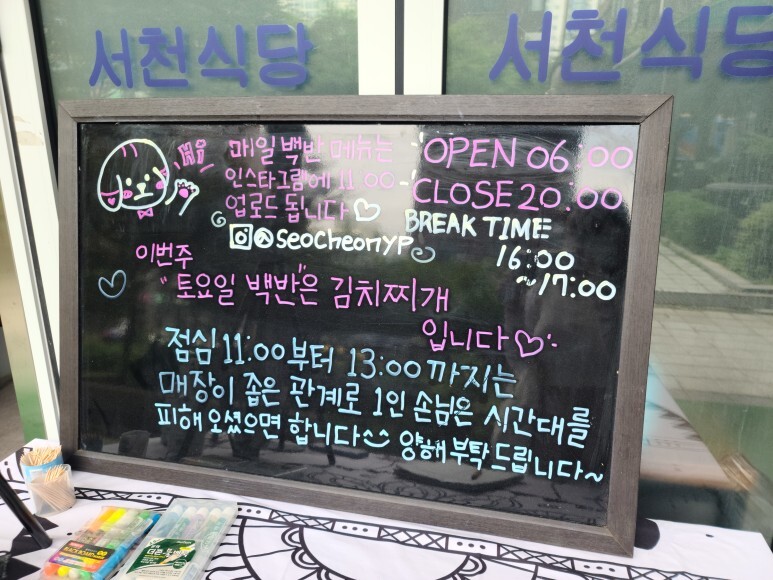 서천식당
서천식당
Hi
매일 백반 메뉴는
인스타그램에 11:00
업로드 됩니다♡
@seocheonyp
OPEN 06:00
CLOSE 20.00
BREAK TIME
16:00
~17:00
이번주
"토요일 백반"은 김치찌개
입니다♡
점심 11:00부터 13:00까지는
매장이 좁은 관계로 1인 손님은 시간대를
피해 오셨으면 합니다 양해 부탁드립니다~